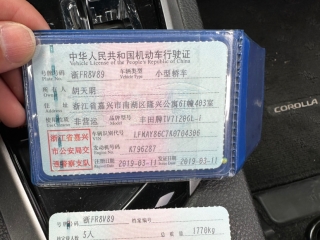 中华人民共和国机动车行驶证
Vehicle License of the People's Republic of China
号牌号码 浙FR8V89 车辆类型 小型轿车
Plate No. Vehicle Type
所有人 胡天
住址 浙江省嘉兴市南湖区 公园61幢403室
使用性质 非营运 品牌型号 丰田牌TV7120GL-i
浙江省嘉兴市公安局交通警察支队
车辆识别代号 LFMAY86C7A0704306
发动机号码 A796287
注册日期 2019-03-11 发证日期 2019-03-11
COROLLA
号牌号码 浙FR8V89 档案编号
核定载人数 5人 总质量 1770kg